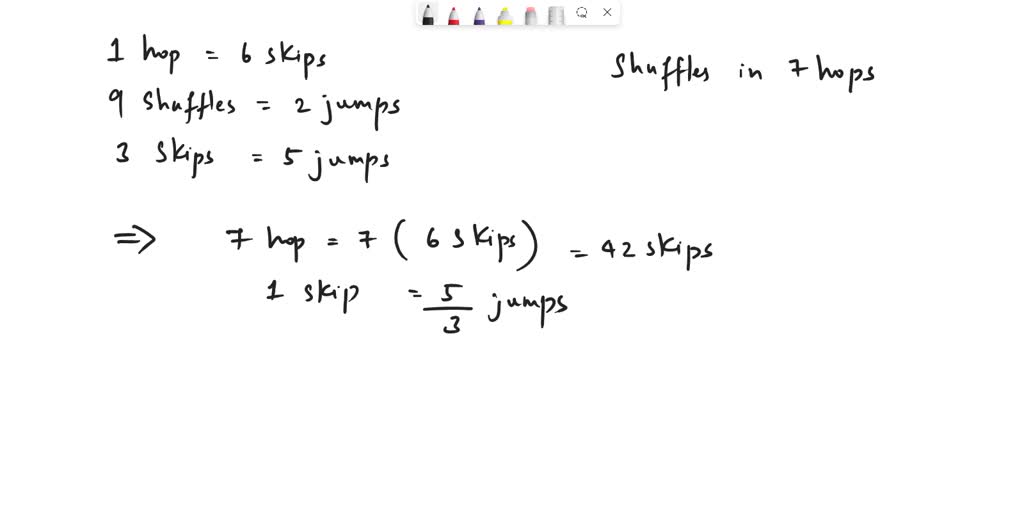 1 hop = 6 skips
Shuffles in 7 hops
9 shuffles = 2 jumps
3 skips = 5 jumps
⇒ 7 hop = 7 ( 6 skips ) = 42 skips
1 skip = 5/3 jumps